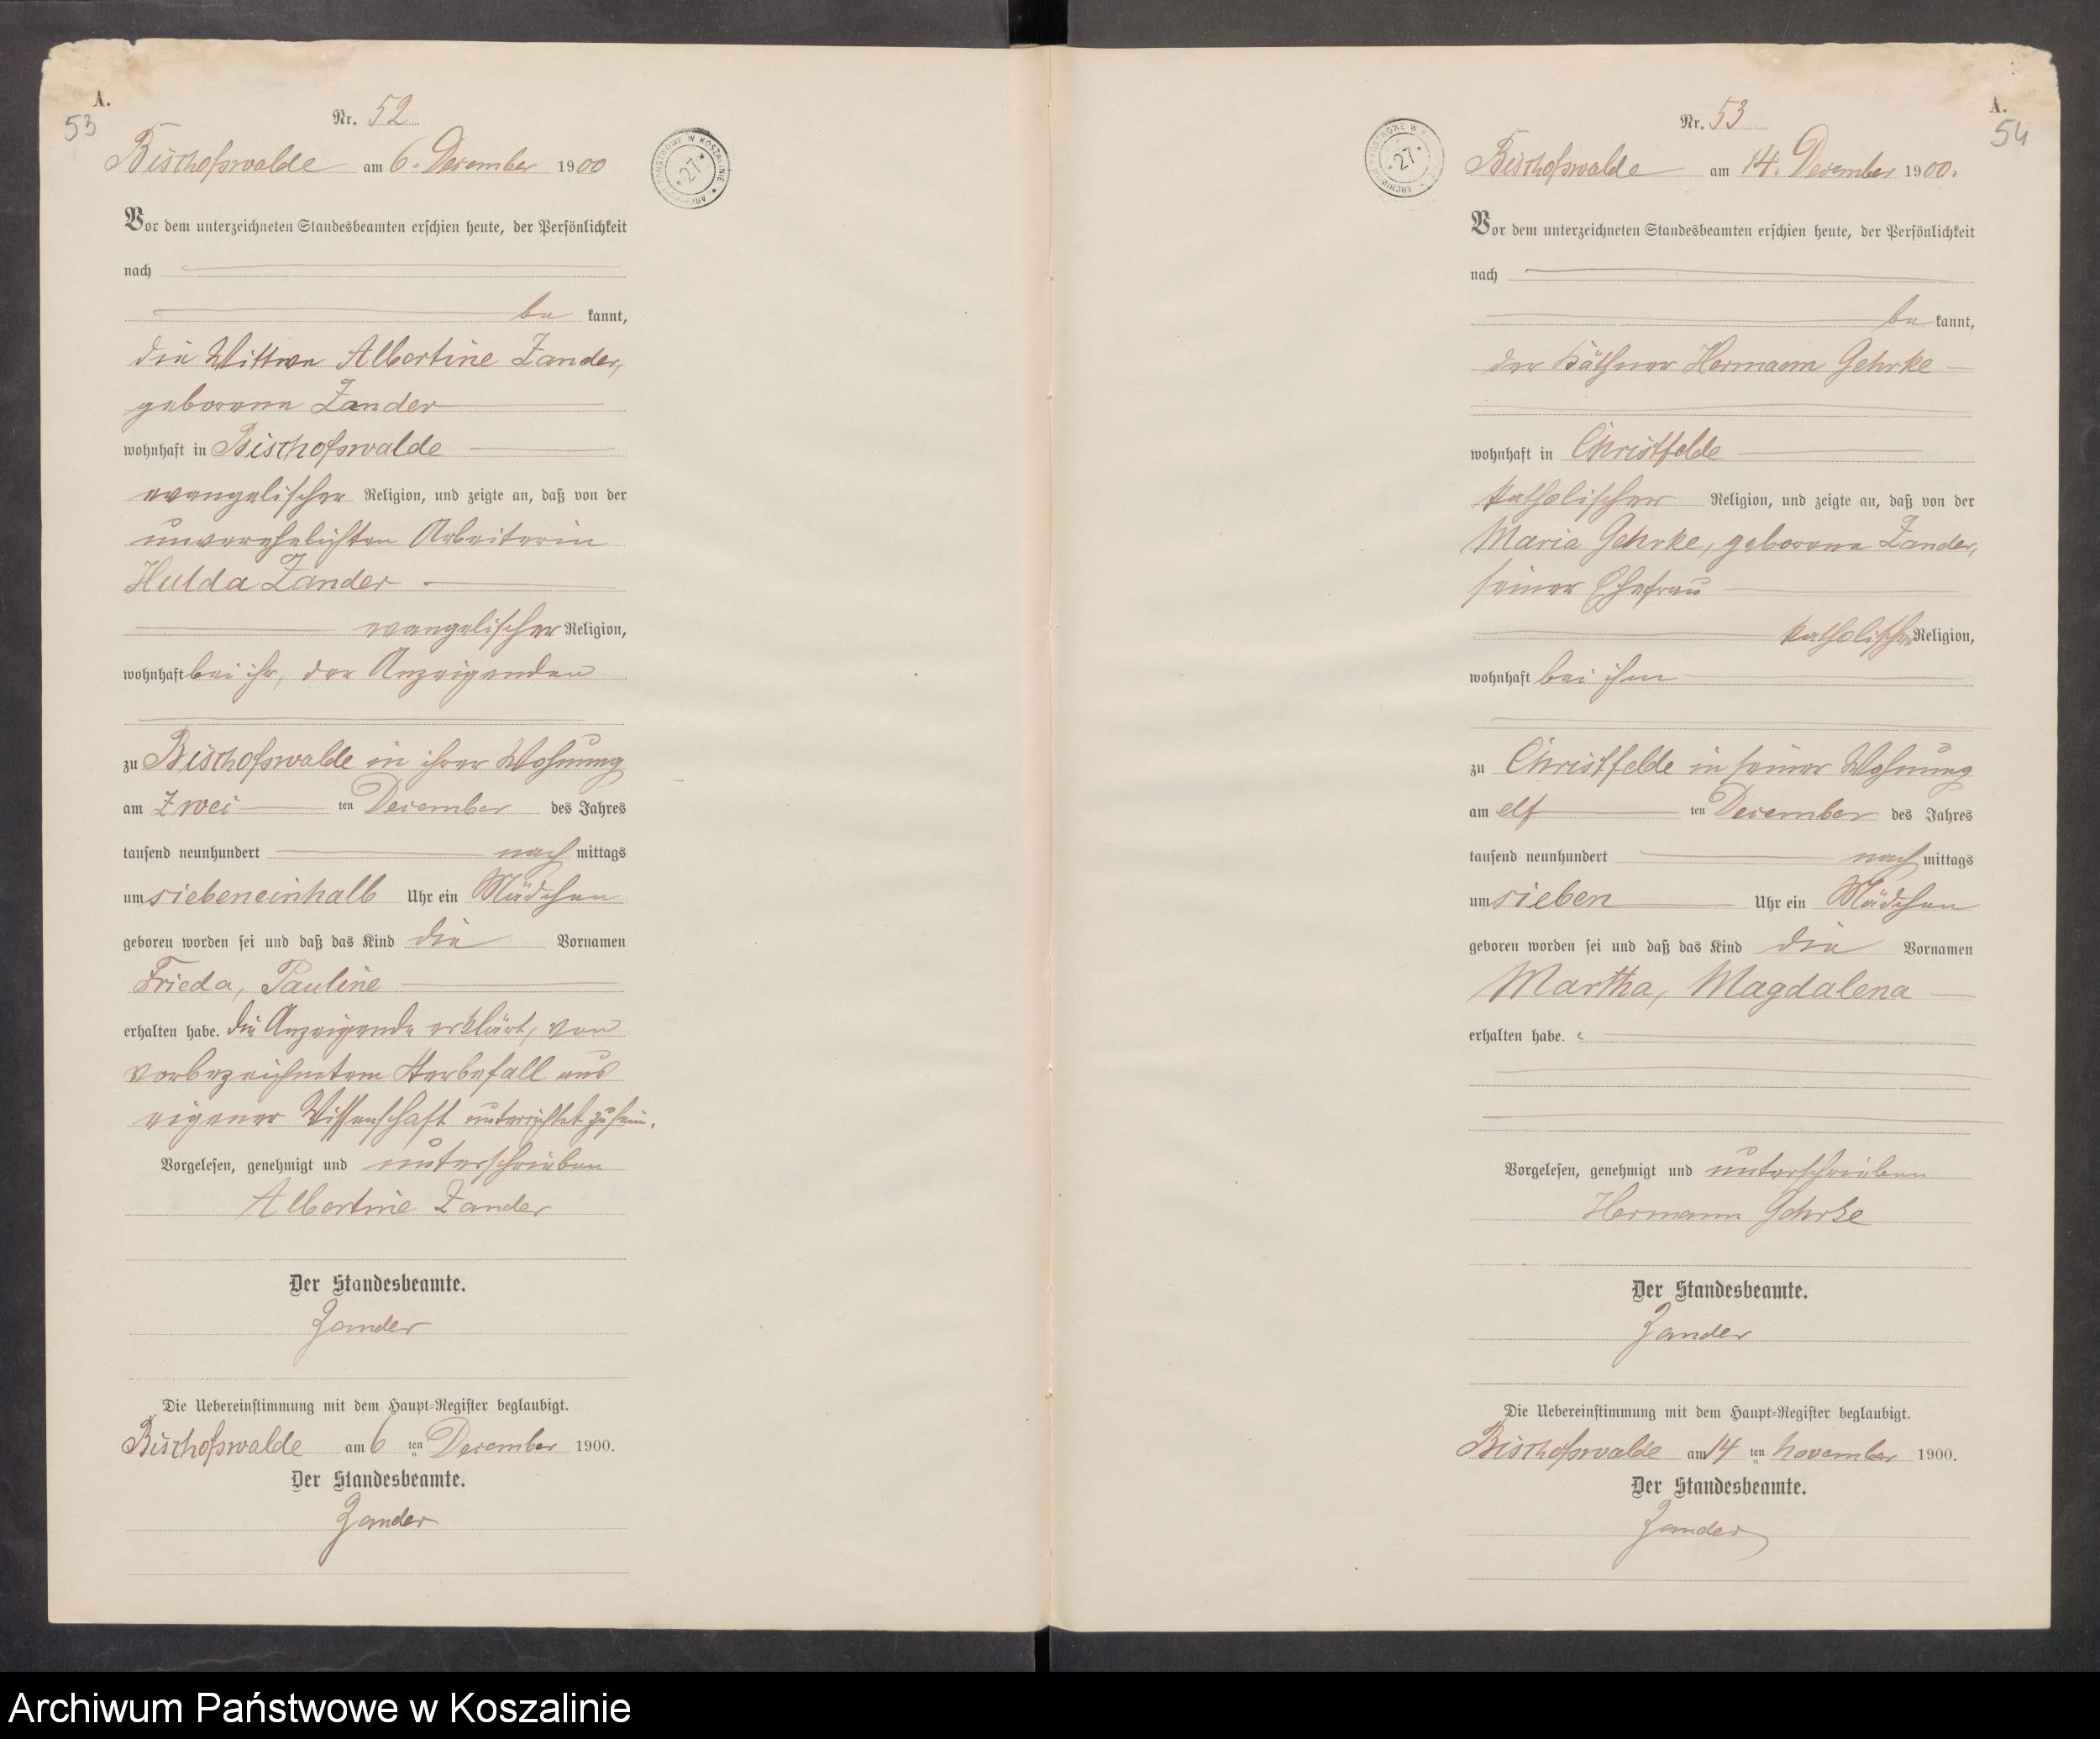 A.
53
Nr. 52
Bischofswalde am 6. Dezember 1900
ARCHIWUM PAŃSTWOWE W KOSZALINIE * 27 *
Vor dem unterzeichneten Standesbeamten erschien heute, der Persönlichkeit
nach
be kannt,
die Wittwe Albertine Zander,
geborene Zander
wohnhaft in Bischofswalde
evangelischer Religion, und zeigte an, daß von der
unverehelichten Arbeiterin
Hulda Zander
evangelischer Religion,
wohnhaft bei ihr, der Anzeigenden
zu Bischofswalde in ihrer Wohnung
am zwei ten Dezember des Jahres
tausend neunhundert nach mittags
um siebeneinhalb Uhr ein Mädchen
geboren worden sei und daß das Kind die Vornamen
Frieda, Pauline
erhalten habe. Die Anzeigende erklärt, von
vorbezeichnetem Sterbefall aus
eigener Wissenschaft unterrichtet zu sein.
Vorgelesen, genehmigt und unterschrieben
Albertine Zander
Der Standesbeamte.
Zander
Die Uebereinstimmung mit dem Haupt-Register beglaubigt.
Bischofswalde am 6 ten Dezember 1900.
Der Standesbeamte.
Zander
A.
54
Nr. 53
Bischofswalde am 14. Dezember 1900.
ARCHIWUM PAŃSTWOWE W * 27 *
Vor dem unterzeichneten Standesbeamten erschien heute, der Persönlichkeit
nach
be kannt,
der Käthner Hermann Gehrke
wohnhaft in Christfelde
katholischer Religion, und zeigte an, daß von der
Maria Gehrke, geborene Zander,
seiner Ehefrau
katholischer Religion,
wohnhaft bei ihm
zu Christfelde in seiner Wohnung
am elf ten Dezember des Jahres
tausend neunhundert nach mittags
um sieben Uhr ein Mädchen
geboren worden sei und daß das Kind die Vornamen
Martha, Magdalena
erhalten habe.
Vorgelesen, genehmigt und unterschrieben
Hermann Gehrke
Der Standesbeamte.
Zander
Die Uebereinstimmung mit dem Haupt-Register beglaubigt.
Bischofswalde am 14 ten November 1900.
Der Standesbeamte.
Zander
Archiwum Państwowe w Koszalinie